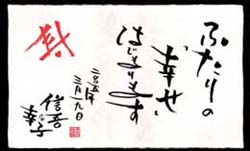 ふたりの
“幸せ”
はじまります
二〇〇五年
三月一九日
信吾
幸子